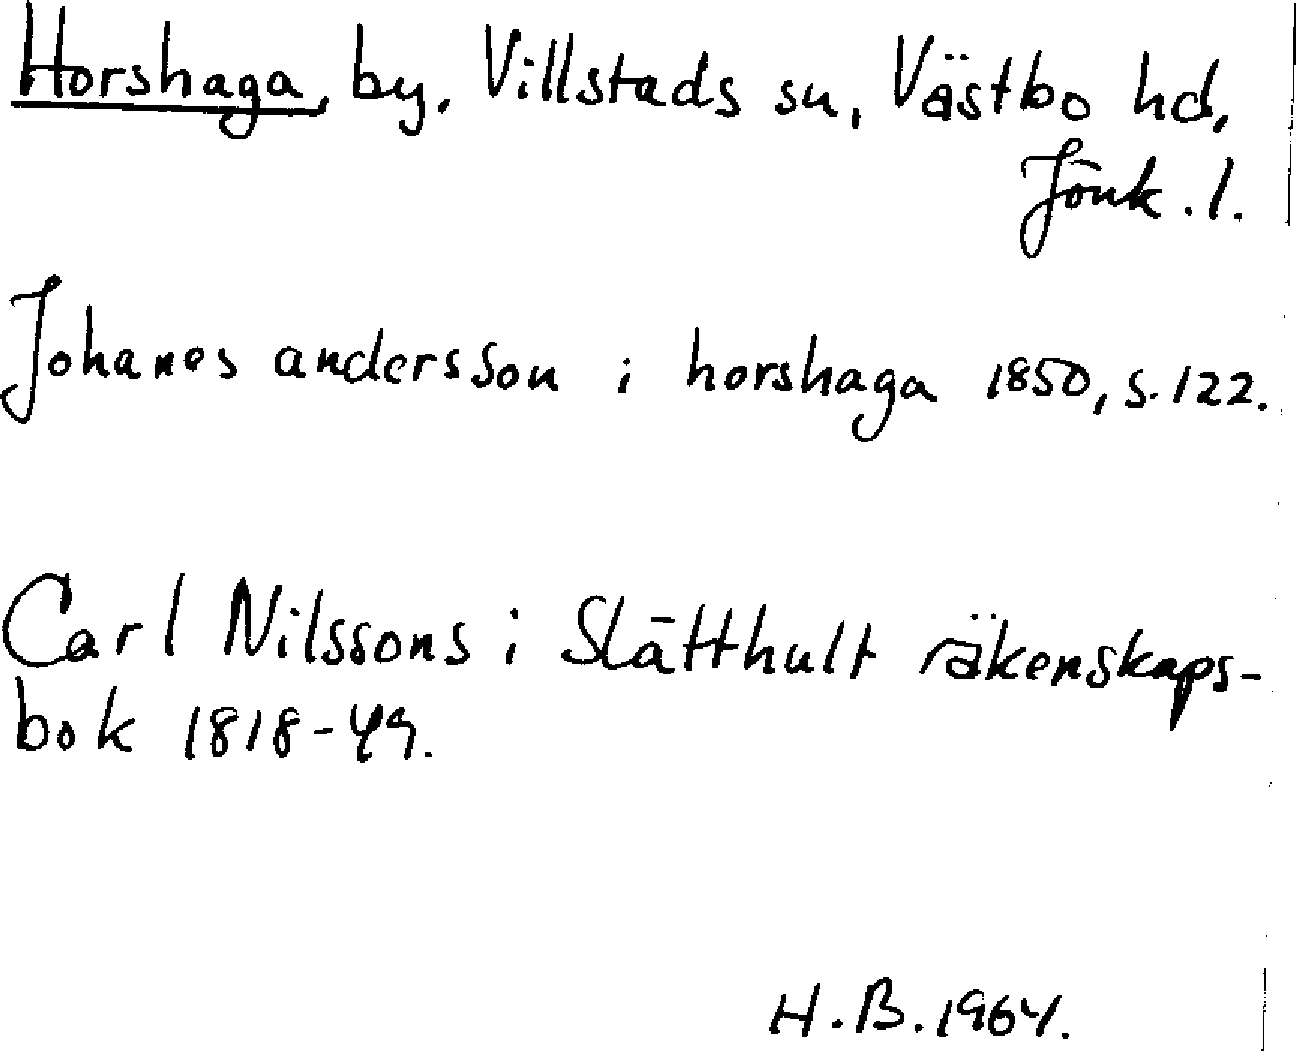 Horshaga, by, Villstads sn, Västbo hd,
Jönk. l.
Johanes andersson i horshaga 1850, s. 122.
Carl Nilssons i Slätthult räkenskaps-
bok 1818-49.
H. B. 1964.